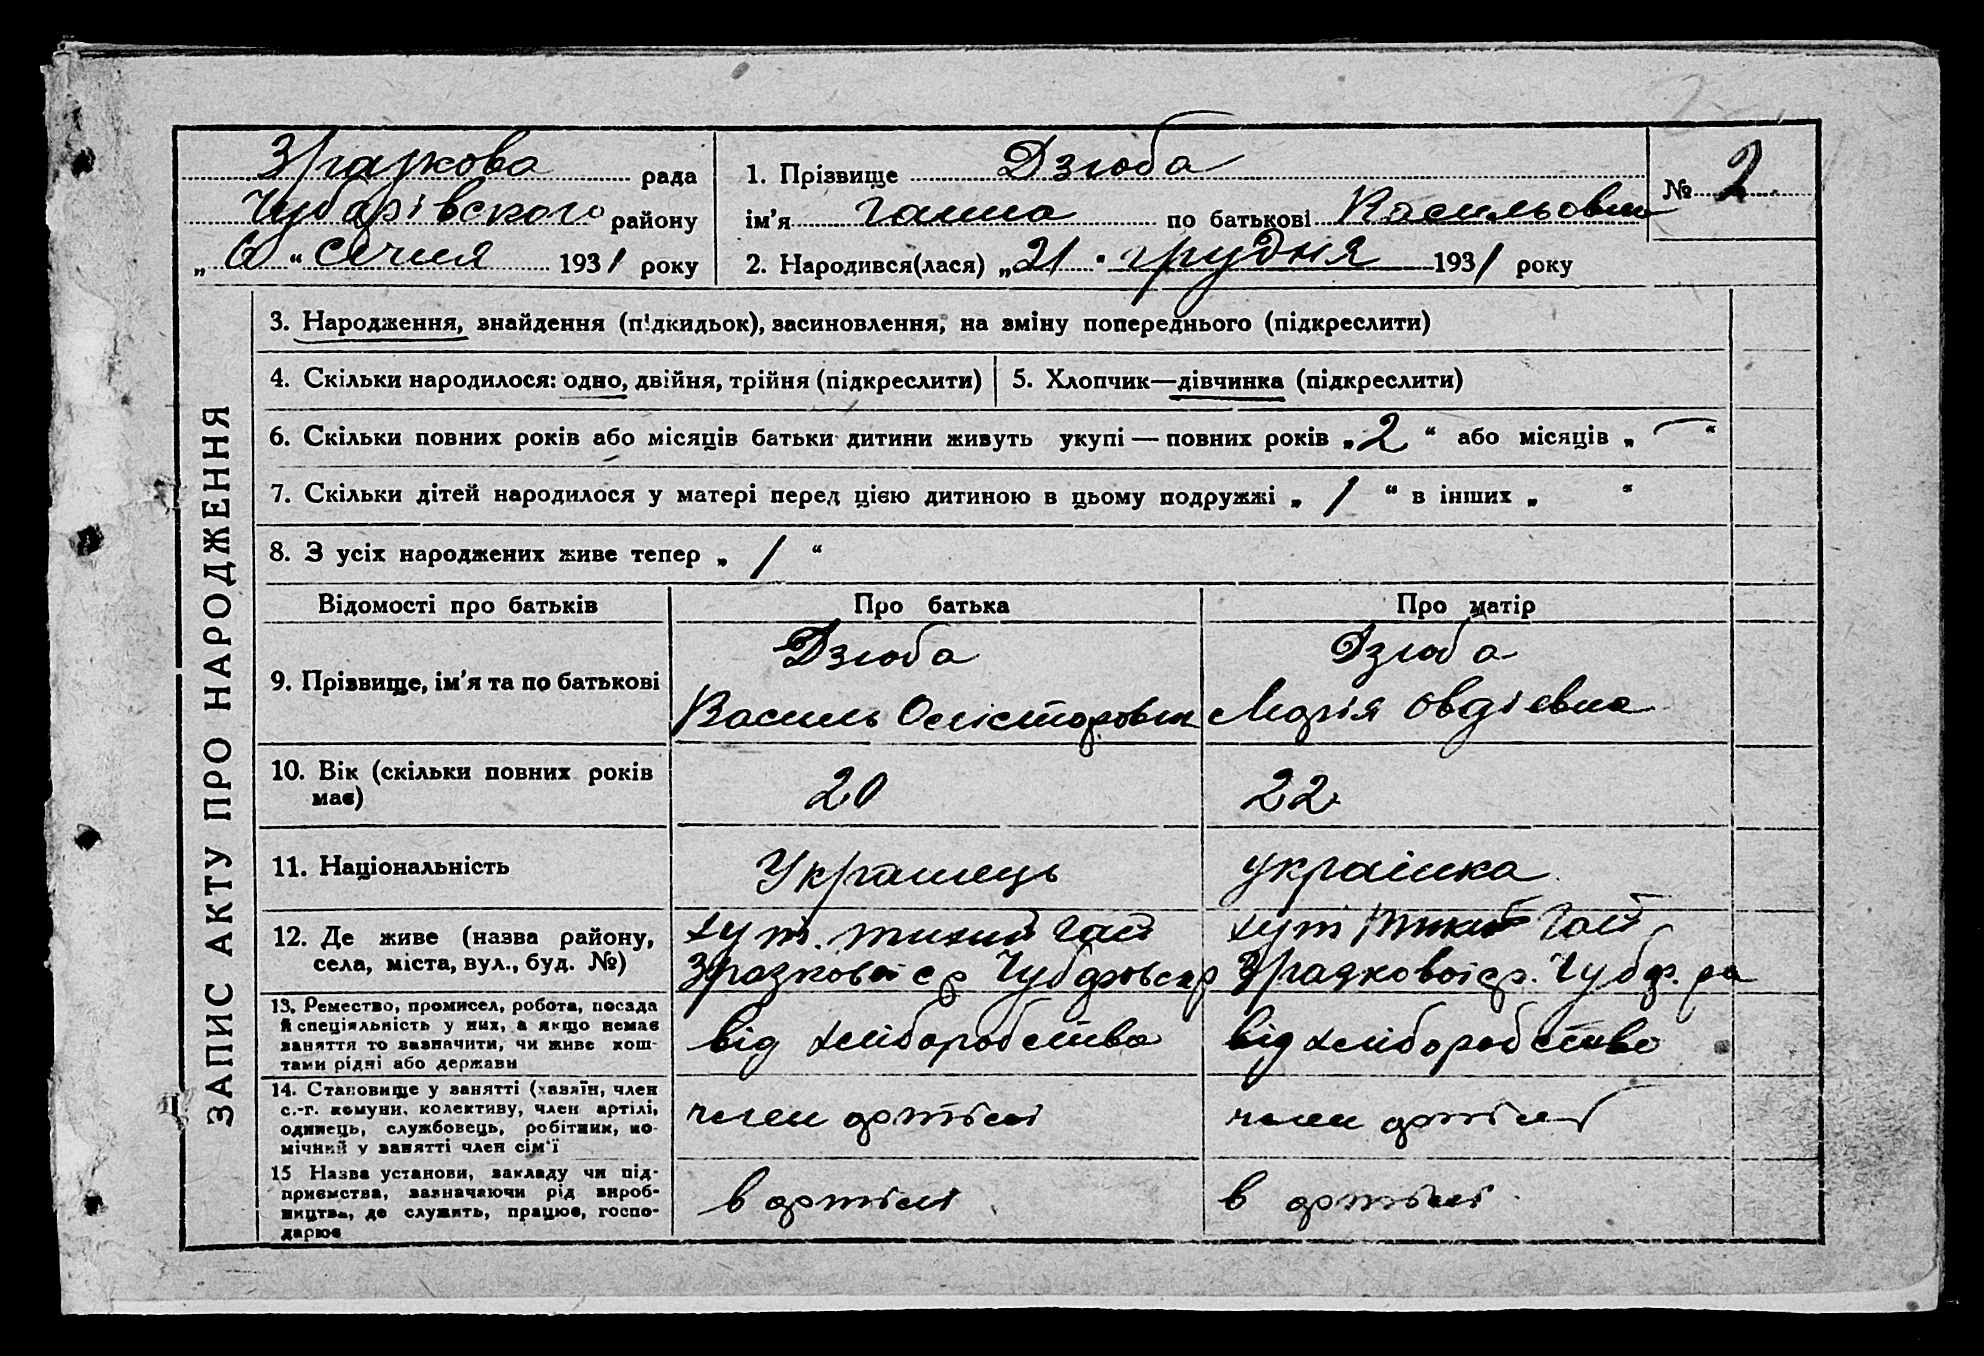 Зразкова рада
Чубарівського району
„6“ січня 1931 року
1. Прізвище Дзюба
ім'я Ганна по батькові Васильовна
2. Народився(лася) „21“ грудня 1931 року
№ 2
ЗАПИС АКТУ ПРО НАРОДЖЕННЯ
3. Народження, знайдення (підкидьок), засиновлення, на зміну попереднього (підкреслити)
4. Скільки народилося: одно, двійня, трійня (підкреслити)
5. Хлопчик—дівчинка (підкреслити)
6. Скільки повних років або місяців батьки дитини живуть укупі — повних років „2“ або місяців „—“
7. Скільки дітей народилося у матері перед цією дитиною в цьому подружжі „1“ в інших „ “
8. З усіх народжених живе тепер „1“
Відомості про батьків
Про батька
Про матір
9. Прізвище, ім'я та по батькові
Дзюба
Василь
Дзюба
Марія Овдіевна
10. Вік (скільки повних років
має)
20
22
11. Національність
Українець
українка
12. Де живе (назва району,
села, міста, вул., буд. №)
хут. тихий Гай
Зразковоі с р
хут Гай
Зразковоі ср. Чубар. ра
13. Ремество, промисел, робота, посада
й спеціяльність у них, а якщо немає
заняття то зазначити, чи живе кош-
тами рідні або держави
від хліборобства
від хліборобства
14. Становище у занятті (хазяїн, член
с.-г. комуни, колективу, член артілі,
одинець, службовець, робітник, по-
мічний у занятті член сім'ї
член артілі
член артілі
15 Назва установи, закладу чи під-
приємства, зазначаючи рід вироб-
ництва, де служить, працює, госпо-
дарює
в артілі
в артілі